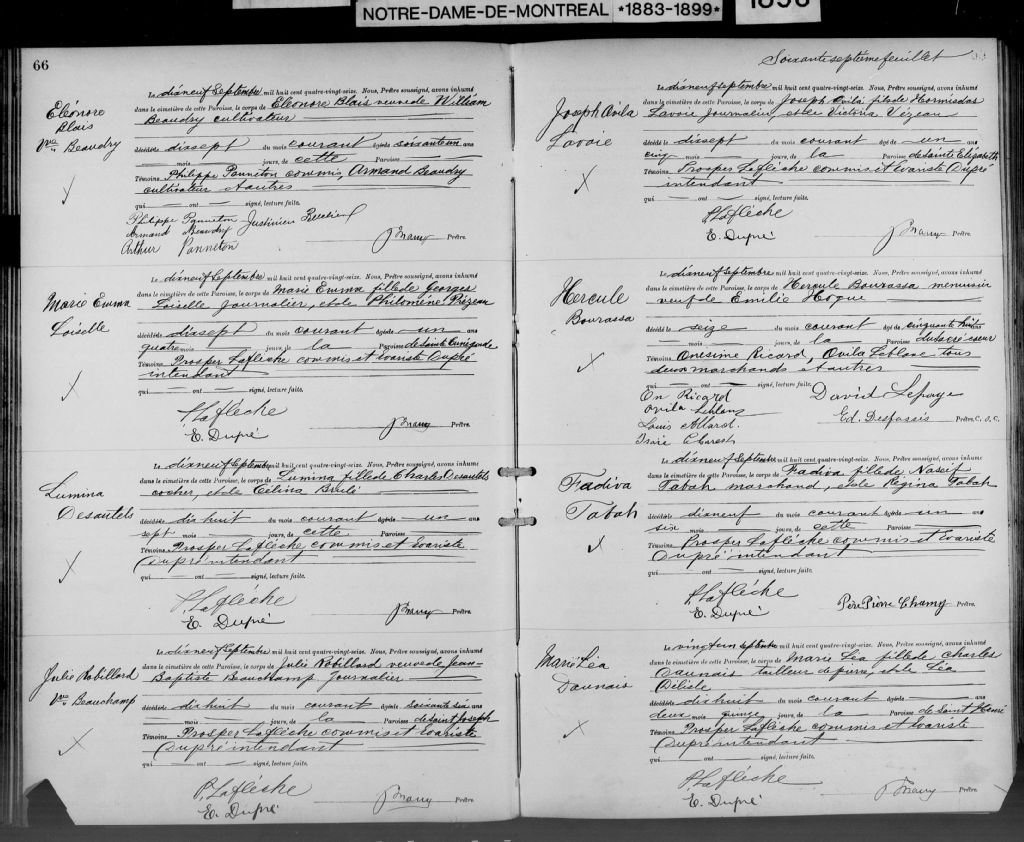 NOTRE-DAME-DE-MONTREAL *1883-1899*
1896
66
Eléonore
Blais
Vve Beaudry
Le dixneuf Septembre mil huit cent quatre-vingt-seize. Nous, Prêtre soussigné, avons inhumé
dans le cimetière de cette Paroisse, le corps de Eléonore Blais veuve de William
Beaudry cultivateur
décédée dissept du mois courant âgée de soixante un ans
mois jours, de cette Paroisse
Témoins Philippe Panneton commis, Armand Beaudry
cultivateur et autres
qui ont signé, lecture faite.
Philippe Panneton Justinien
Armand Beaudry
Arthur Panneton
Prêtre.
Marie Emma
Loiselle
Le dixneuf Septembre mil huit cent quatre-vingt-seize. Nous, Prêtre soussigné, avons inhumé
dans le cimetière de cette Paroisse, le corps de Marie Emma fille de Georges
Loiselle journalier, et de Philomène
décédée dissept du mois courant âgée de un ans
quatre mois jours, de la Paroisse de Sainte Cunégonde
Témoins Prosper Laflèche commis et Evariste Dupré
intendant
qui ont signé, lecture faite.
P. Laflèche
E. Dupré
Prêtre.
Lumina
Desautels
Le dixneuf Septembre mil huit cent quatre-vingt-seize. Nous, Prêtre soussigné, avons inhumé
dans le cimetière de cette Paroisse, le corps de Lumina fille de Charles Desautels
cocher, et de Célina Brulé
décédée dix huit du mois courant âgée de un ans
sept mois jours, de cette Paroisse
Témoins Prosper Laflèche commis et Evariste
Dupré intendant
qui ont signé, lecture faite.
P. Laflèche
E. Dupré
Prêtre.
Julie Robillard
Vve Beauchamp
Le dixneuf Septembre mil huit cent quatre-vingt-seize. Nous, Prêtre soussigné, avons inhumé
dans le cimetière de cette Paroisse, le corps de Julie Robillard veuve de Jean-
Baptiste Beauchamp journalier
décédée dix huit du mois courant âgée de soixante six ans
mois jours, de la Paroisse de Saint Joseph
Témoins Prosper Laflèche commis et Evariste
Dupré intendant
qui ont signé, lecture faite.
P. Laflèche
E. Dupré
Prêtre.
Soixante septième feuillet
Joseph Ovila
Lavoie
Le dixneuf Septembre mil huit cent quatre-vingt-seize. Nous, Prêtre soussigné, avons inhumé
dans le cimetière de cette Paroisse, le corps de Joseph Ovila fils de Hormisdas
Lavoie journalier, et de Victoria Vézeau
décédé dissept du mois courant âgé de un ans
cinq mois jours, de la Paroisse de Sainte Elizabeth
Témoins Prosper Laflèche commis et Evariste Dupré
intendant
qui ont signé, lecture faite.
P. Laflèche
E. Dupré
Prêtre.
Hercule
Bourassa
Le dixneuf Septembre mil huit cent quatre-vingt-seize. Nous, Prêtre soussigné, avons inhumé
dans le cimetière de cette Paroisse, le corps de Hercule Bourassa menuisier
veuf de Emilie Hogue
décédé le seize du mois courant âgé de cinquante huit ans
mois jours, de la Paroisse du Sacré coeur
Témoins Onesime Ricard, Ovila Leblanc tous
deux marchands et autres
qui ont signé, lecture faite.
On Ricard David Lepage
Ovila Leblanc
Louis Allard. Ed. Desfossés Prêtre C. J. C.
Isaïe
Fadiva
Tabah
Le dixneuf Septembre mil huit cent quatre-vingt-seize. Nous, Prêtre soussigné, avons inhumé
dans le cimetière de cette Paroisse, le corps de Fadiva fille de Naseif
Tabah marchand, et de Régina Tabah
décédée dixneuf du mois courant âgée de un ans
six mois jours, de cette Paroisse
Témoins Prosper Laflèche commis et Evariste
Dupré intendant
qui ont signé, lecture faite.
P. Laflèche
E. Dupré
Père Pierre Chamy Prêtre.
Marie Léa
Daunais
Le vingt un Septembre mil huit cent quatre-vingt-seize. Nous, Prêtre soussigné, avons inhumé
dans le cimetière de cette Paroisse, le corps de Marie Léa fille de Charles
Daunais tailleur de pierre, et de Léa
Délisle
décédée dix huit du mois courant âgée de ans
deux mois quinze jours, de la Paroisse de Saint Henri
Témoins Prosper Laflèche commis et Evariste
Dupré intendant
qui ont signé, lecture faite.
P. Laflèche
E. Dupré
Prêtre.